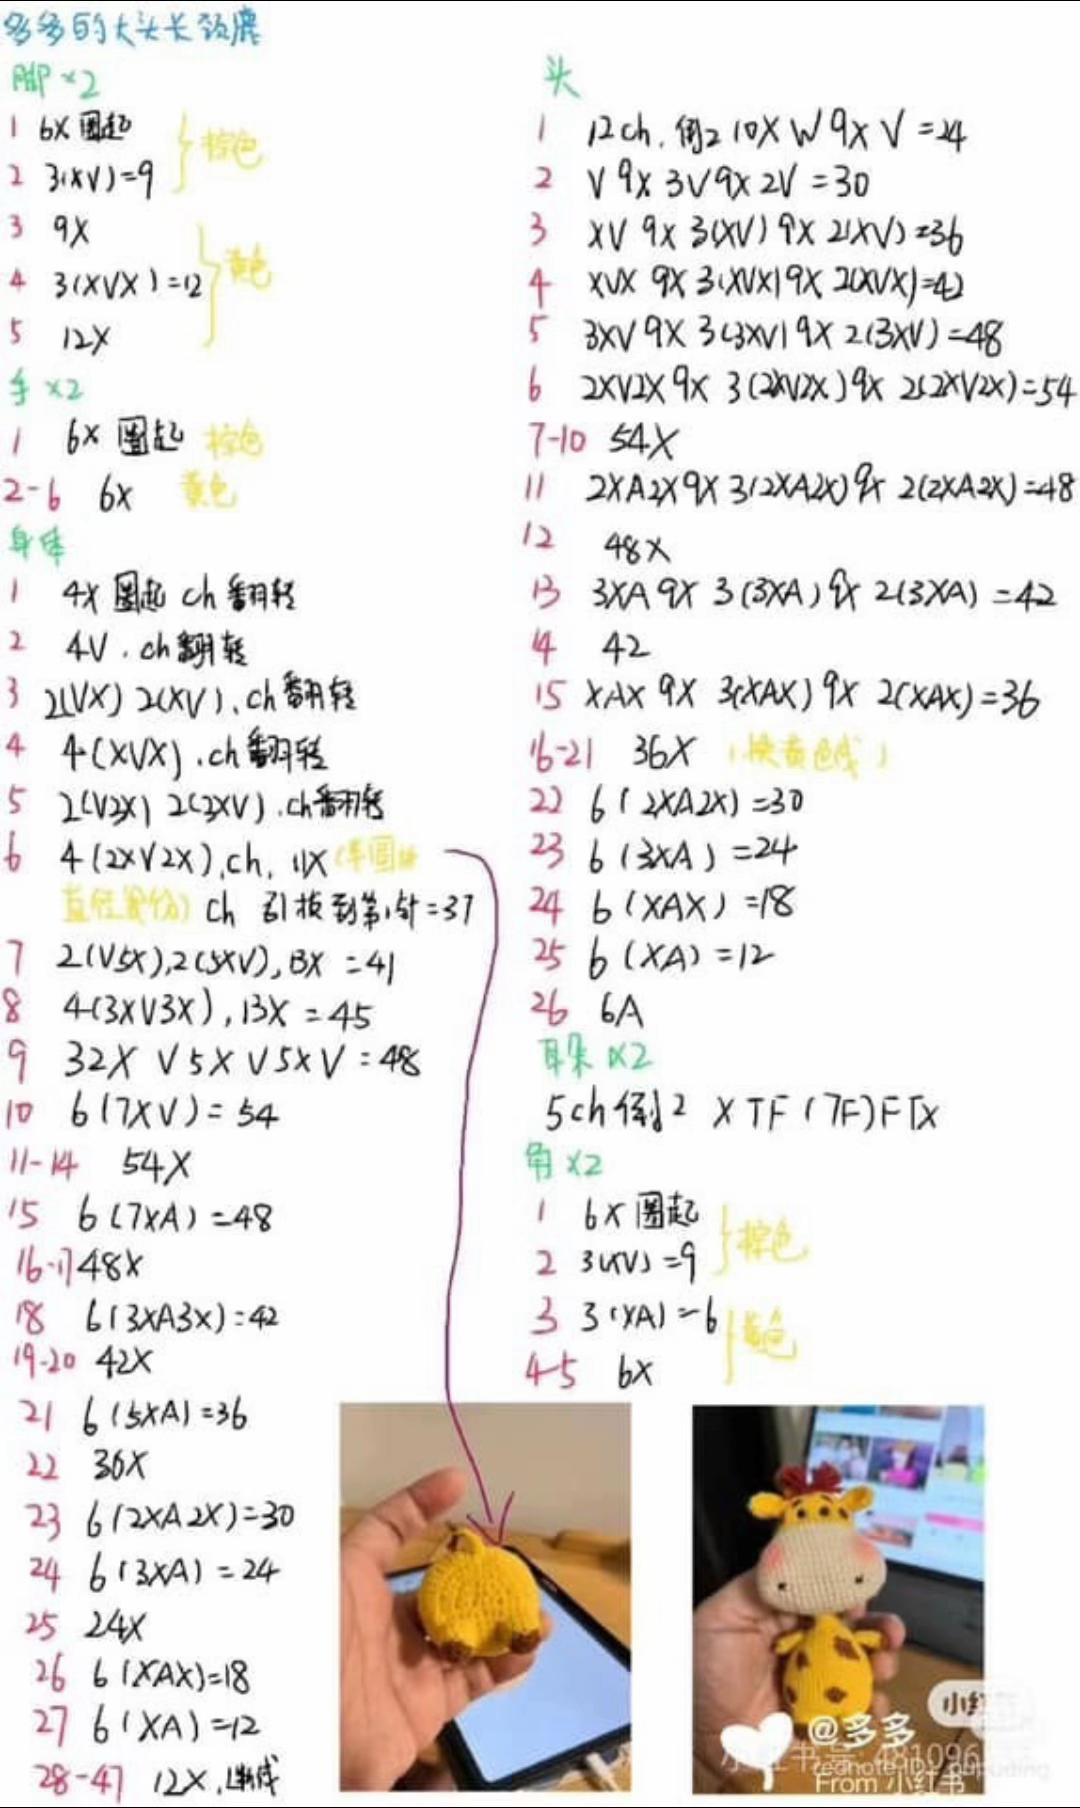 多多的大头长颈鹿
脚×2
1 6X 圈起
2 3(XV)=9
棕色
3 9X
4 3(XVX)=12
5 12X
黄色
手×2
1 6X 圈起 棕色
2-6 6X 黄色
身体
1 4X 圈起 ch 翻转
2 4V.ch翻转
3 2(VX) 2(XV).ch翻转
4 4(XVX).ch翻转
5 2(V3X) 2(3XV).ch翻转
6 4(2XV2X),ch, 11X (半圆的
直径部份) ch 引拔到第1针=37
7 2(V5X),2(5XV),13X =41
8 4(3XV3X),13X =45
9 32X V5X V5XV =48
10 6(7XV)=54
11-14 54X
15 6(7XA)=48
16-17 48X
18 6(3XA3X)=42
19-20 42X
21 6(5XA)=36
22 36X
23 6(2XA2X)=30
24 6(3XA)=24
25 24X
26 6(XAX)=18
27 6(XA)=12
28-47 12X,断线
头
1 12ch.倒2 10X W 9X V =24
2 V 9X 3V 9X 2V =30
3 XV 9X 3(XV) 9X 2(XV)=36
4 XVX 9X 3(XVX) 9X 2(XVX)=42
5 3XV 9X 3(3XV) 9X 2(3XV)=48
6 2XV2X 9X 3(2XV2X) 9X 2(2XV2X)=54
7-10 54X
11 2XA2X 9X 3(2XA2X) 9X 2(2XA2X)=48
12 48X
13 3XA 9X 3(3XA) 9X 2(3XA)=42
14 42
15 XAX 9X 3(XAX) 9X 2(XAX)=36
16-21 36X (换黄色线)
22 6(2XA2X)=30
23 6(3XA)=24
24 6(XAX)=18
25 6(XA)=12
26 6A
耳朵×2
5ch 倒2 XTF(7F)FTX
角×2
1 6X 圈起
2 3(XV)=9
棕色
3 3(XA)=6
4-5 6X
黄色
@多多
From 小红书